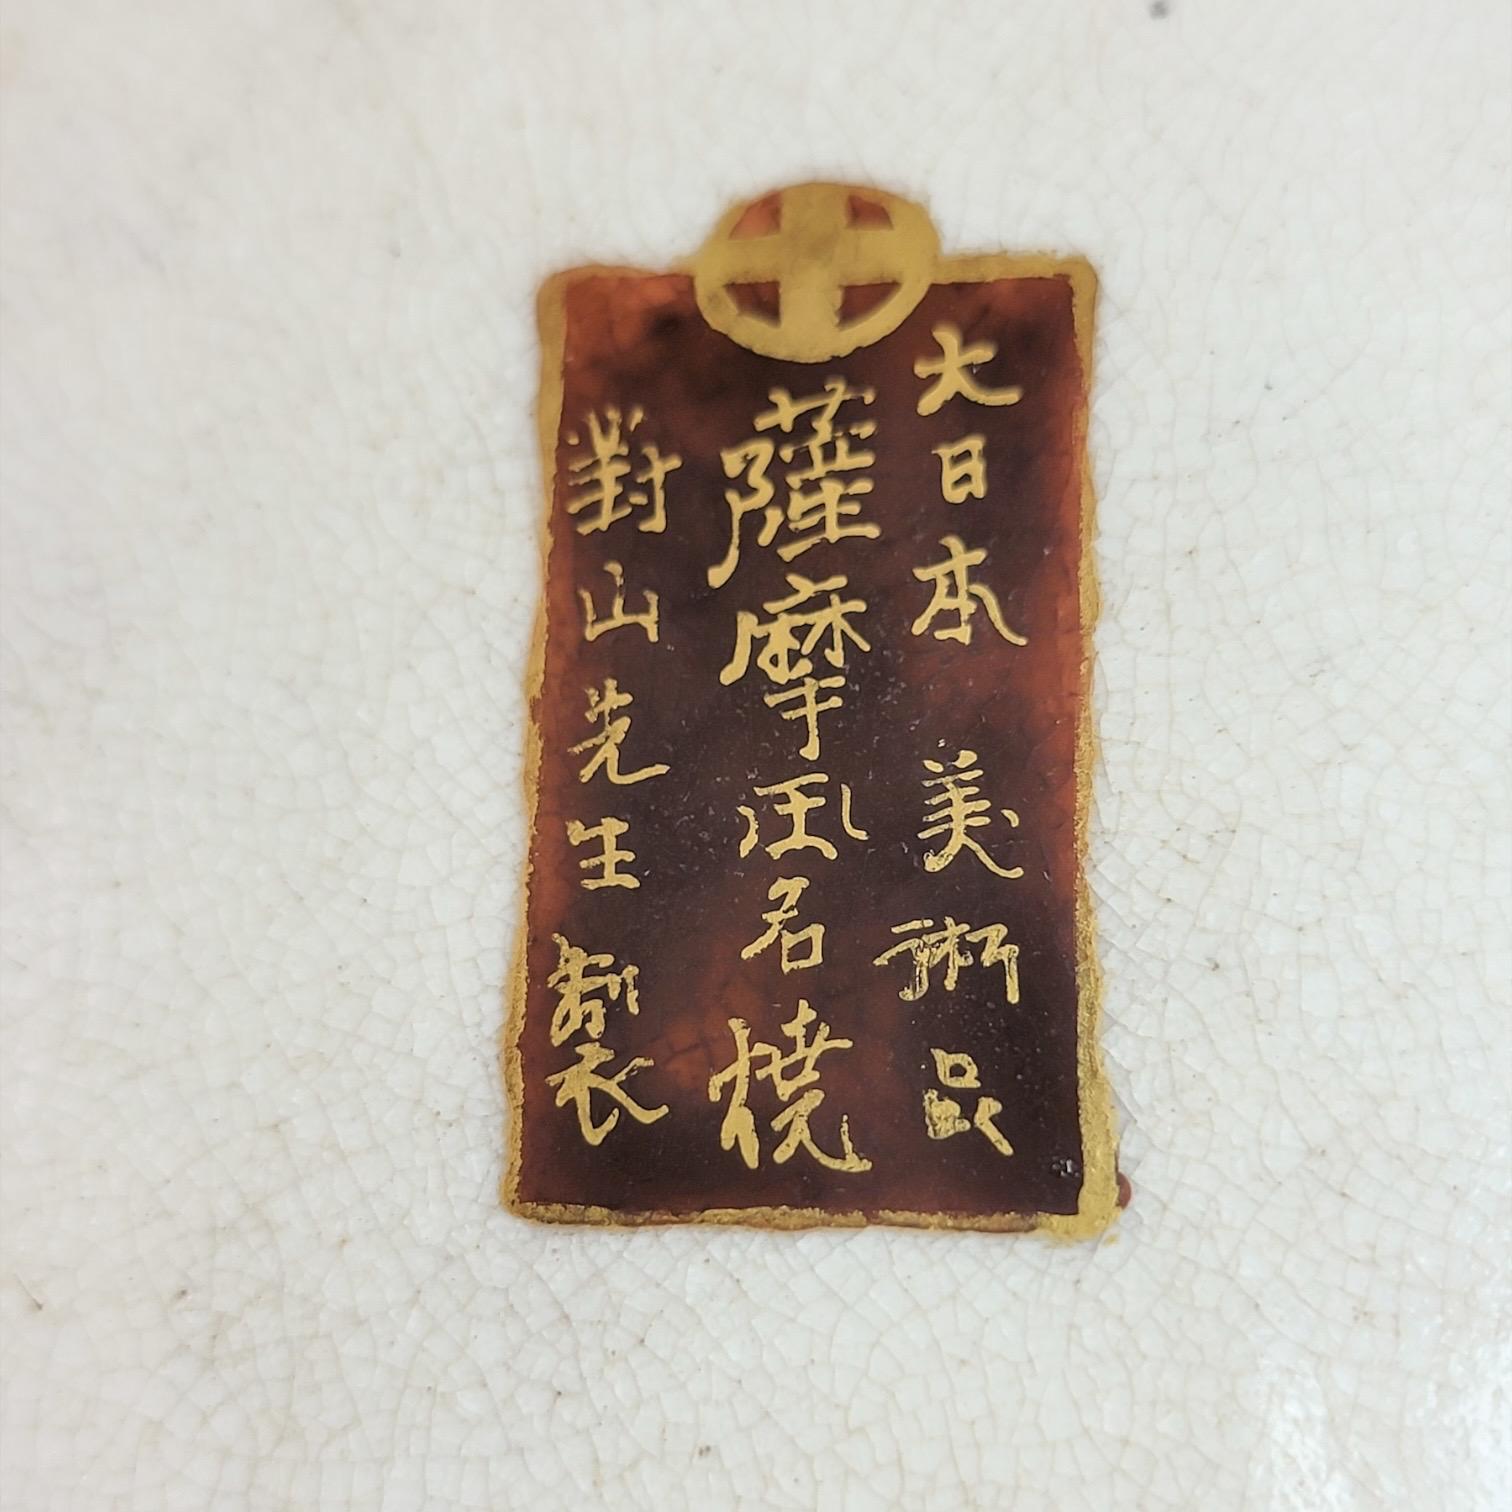 大日本 美術品
薩摩国名焼
對山先生製